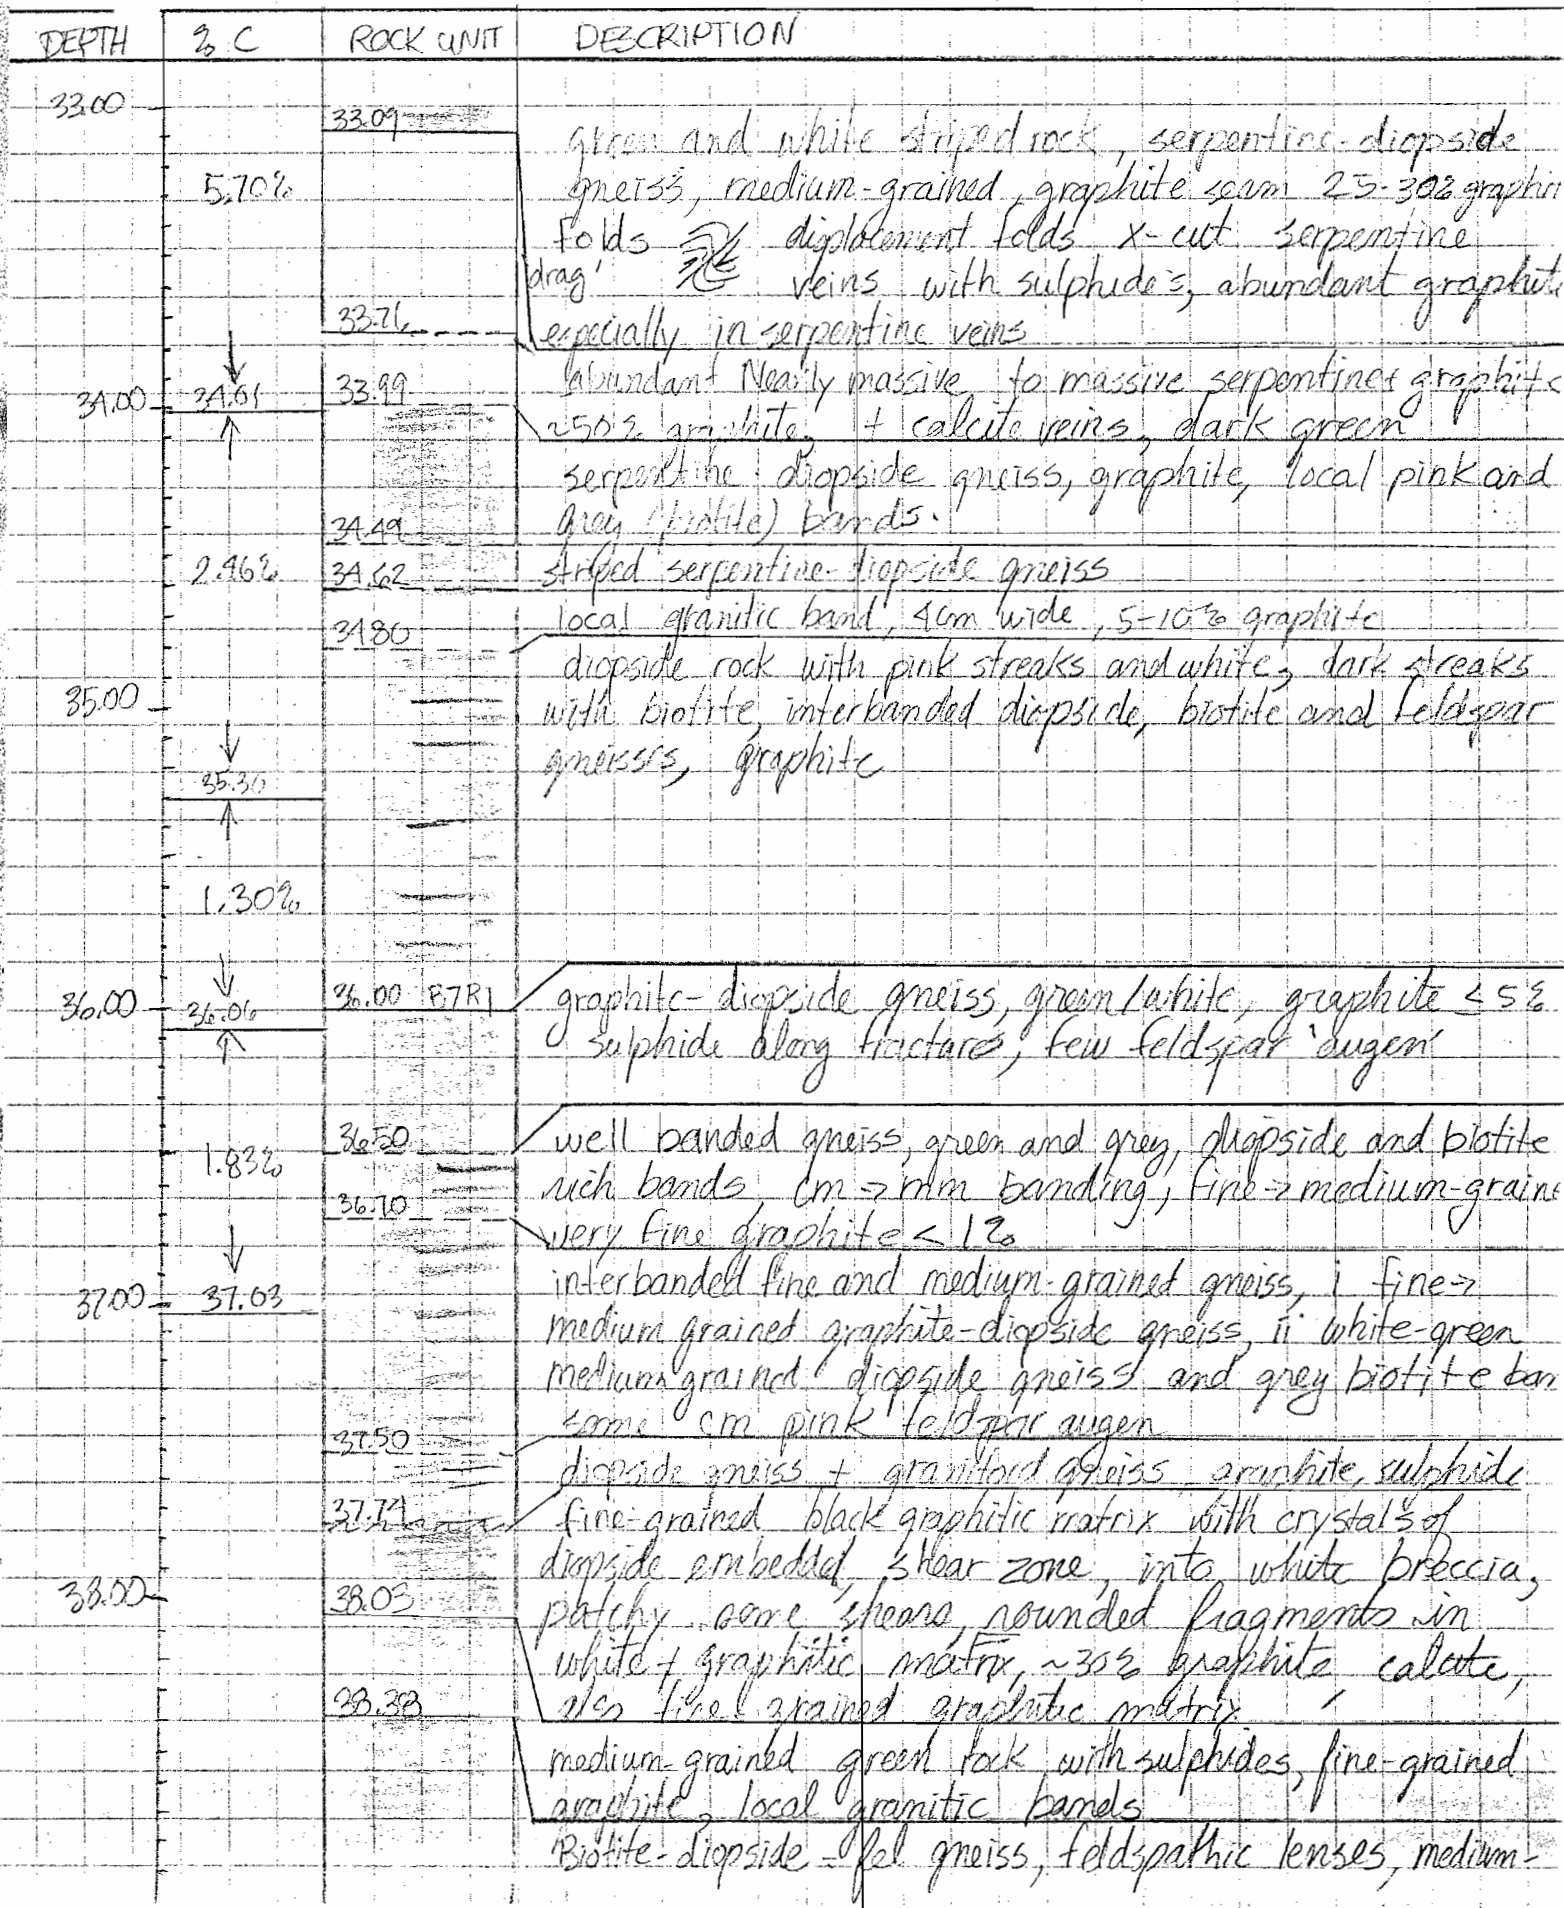 DEPTH % C ROCK UNIT DESCRIPTION
33.00
33.09
green and white striped rock, serpentine-diopside
5.70% gneiss, medium-grained, graphite seam 25-30% graphit
folds displacement folds x-cut serpentine
'drag' veins with sulphide's, abundant graphite
33.76
especially in serpentine veins
34.00 34.01 33.99 abundant Nearly massive to massive serpentine+ graphite
~50% graphite, + calcite veins, dark green
serpentine-diopside gneiss, graphite, local pink and
34.49 grey (biotite) bands.
2.46% 34.62 striped serpentine-diopside gneiss
34.80 local granitic band, 4cm wide, 5-10% graphite
diopside rock with pink streaks and white, dark streaks
35.00 with biotite, interbanded diopside, biotite and feldspar
35.30 gneisses, graphite
1.30%
36.00 36.06 36.00 graphite-diopside gneiss, green/white, graphite ≤5%
sulphide along fractures, few feldspar 'augen'
36.50 well banded gneiss, green and grey, diopside and biotite
1.83% rich bands, cm→mm banding, fine→medium-graine
36.70 very fine graphite <1%
interbanded fine and medium-grained gneiss, i fine→
37.00 37.03 medium grained graphite-diopside gneiss, ii white-green
medium grained diopside gneiss and grey biotite ban
37.50 some cm pink feldspar augen
diopside gneiss + granitoid gneiss graphite, sulphide
37.74 fine-grained black graphitic matrix with crystals of
diopside embedded, shear zone, into white breccia,
38.00 38.03 patchy some shears, rounded fragments in
white + graphitic matrix, ~30% graphite, calcite,
38.38 also fine grained graphitic matrix
medium-grained green rock with sulphides, fine-grained
graphite, local granitic bands
Biotite-diopside-fel gneiss, feldspathic lenses, medium-